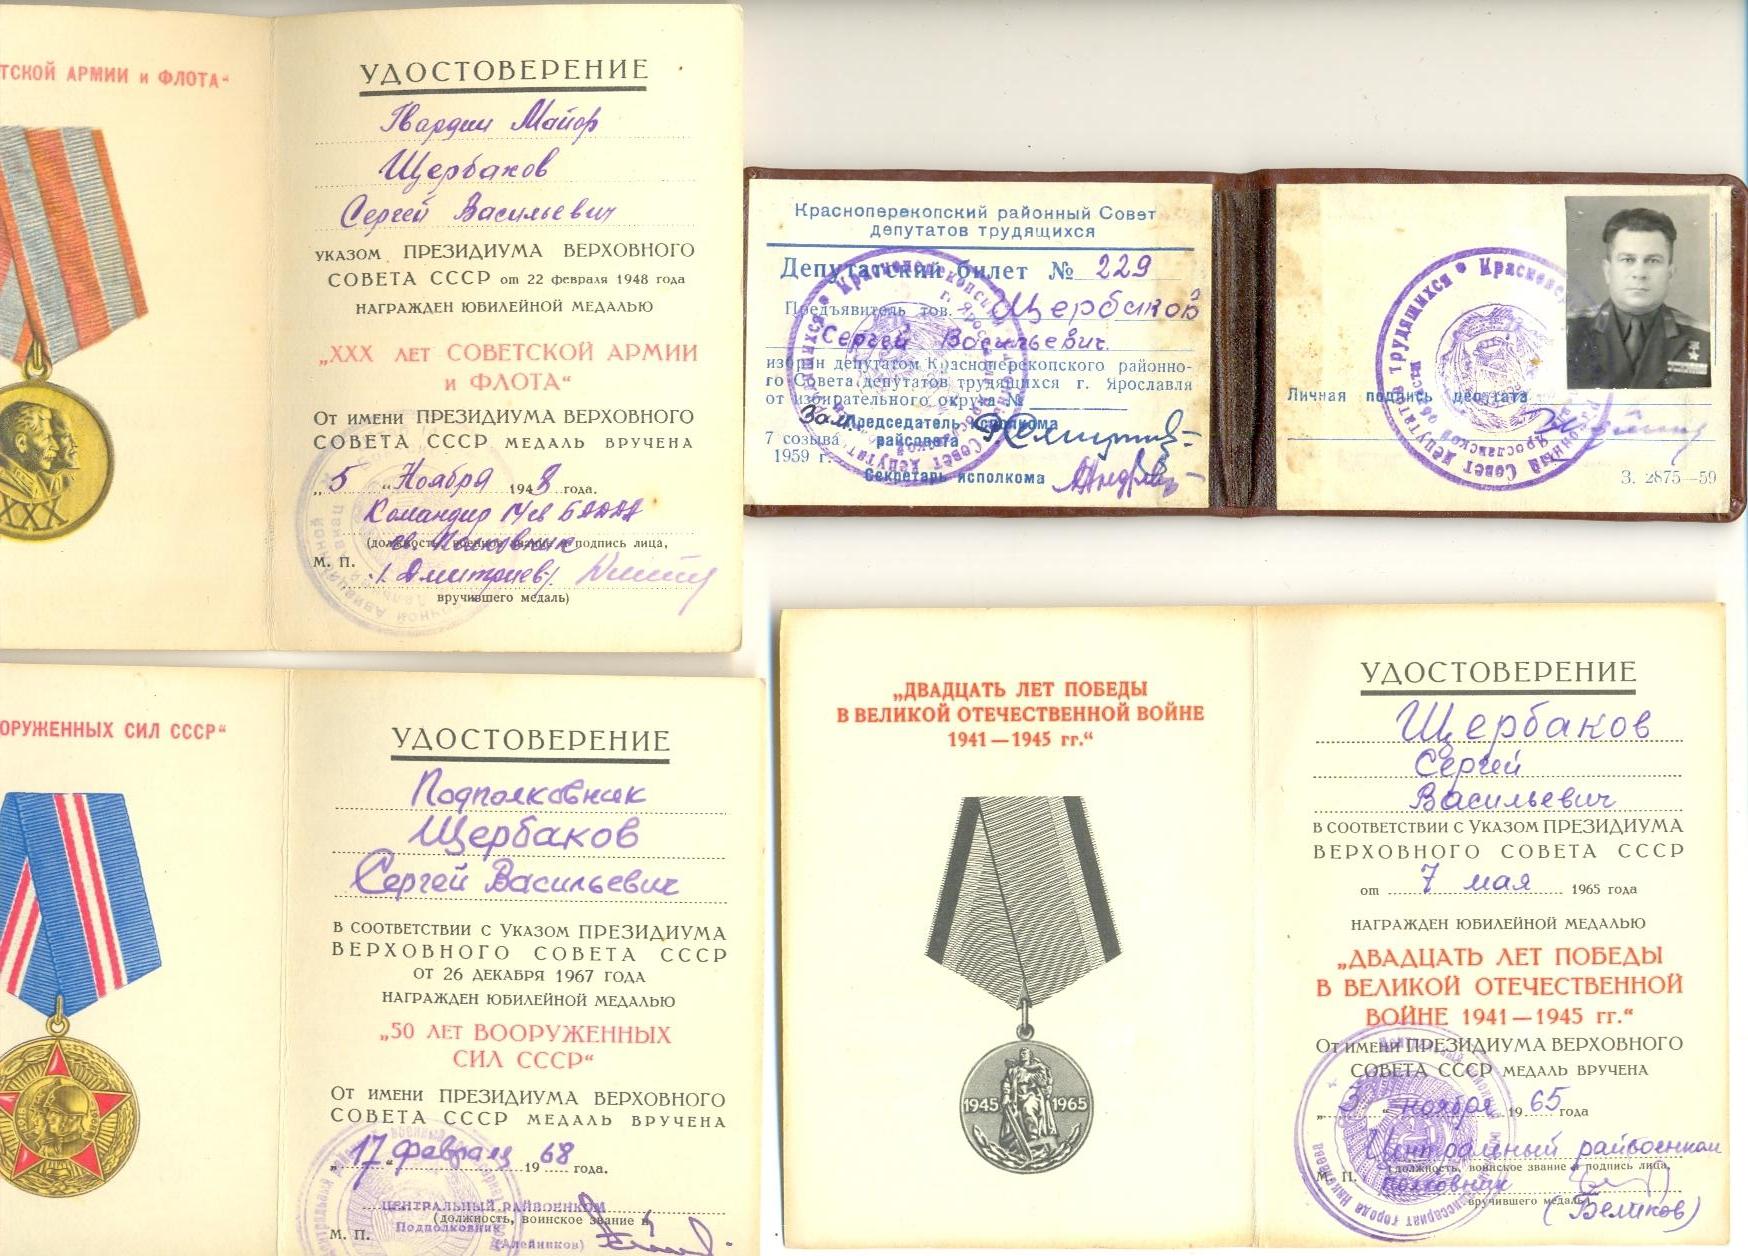 ТСКОЙ АРМИИ и ФЛОТА“
УДОСТОВЕРЕНИЕ
Гвардии Майор
Щербаков
Сергей Васильевич
УКАЗОМ ПРЕЗИДИУМА ВЕРХОВНОГО
СОВЕТА СССР от 22 февраля 1948 года
НАГРАЖДЕН ЮБИЛЕЙНОЙ МЕДАЛЬЮ
„XXX ЛЕТ СОВЕТСКОЙ АРМИИ
и ФЛОТА“
От имени ПРЕЗИДИУМА ВЕРХОВНОГО
СОВЕТА СССР МЕДАЛЬ ВРУЧЕНА
„5“ Ноября 1948 года.
Командир
(должность, военное звание и подпись лица,
М. П. /Дмитриев/
вручившего медаль)
XXX
Красноперекопский районный Совет
депутатов трудящихся
Депутатский билет № 229
Предъявитель тов. Щербаков
Сергей Васильевич
избран депутатом Красноперекопского районно-
го Совета депутатов трудящихся г. Ярославля
от избирательного округа №
Зам. Председатель исполкома
7 созыва райсовета
1959 г.
Секретарь исполкома
Личная подпись депутата
З. 2875—59
ОРУЖЕННЫХ СИЛ СССР“
УДОСТОВЕРЕНИЕ
Подполковник
Щербаков
Сергей Васильевич
В СООТВЕТСТВИИ С УКАЗОМ ПРЕЗИДИУМА
ВЕРХОВНОГО СОВЕТА СССР
ОТ 26 ДЕКАБРЯ 1967 ГОДА
НАГРАЖДЕН ЮБИЛЕЙНОЙ МЕДАЛЬЮ
„50 ЛЕТ ВООРУЖЕННЫХ
СИЛ СССР“
От имени ПРЕЗИДИУМА ВЕРХОВНОГО
СОВЕТА СССР МЕДАЛЬ ВРУЧЕНА
„17“ февраля 1968 года.
ЦЕНТРАЛЬНЫЙ РАЙВОЕНКОМ
(должность, воинское звание и
Подполковник
М. П.
(Алейников)
„ДВАДЦАТЬ ЛЕТ ПОБЕДЫ
В ВЕЛИКОЙ ОТЕЧЕСТВЕННОЙ ВОЙНЕ
1941—1945 гг.“
1945 1965
УДОСТОВЕРЕНИЕ
Щербаков
Сергей
Васильевич
В СООТВЕТСТВИИ С УКАЗОМ ПРЕЗИДИУМА
ВЕРХОВНОГО СОВЕТА СССР
от 7 мая 1965 года
НАГРАЖДЕН ЮБИЛЕЙНОЙ МЕДАЛЬЮ
„ДВАДЦАТЬ ЛЕТ ПОБЕДЫ
В ВЕЛИКОЙ ОТЕЧЕСТВЕННОЙ
ВОЙНЕ 1941—1945 гг.“
От имени ПРЕЗИДИУМА ВЕРХОВНОГО
СОВЕТА СССР МЕДАЛЬ ВРУЧЕНА
„5“ ноября 1965 года
Центральный райвоенком
(должность, воинское звание и подпись лица,
М. П. полковник
вручившего медаль)
(Беликов)